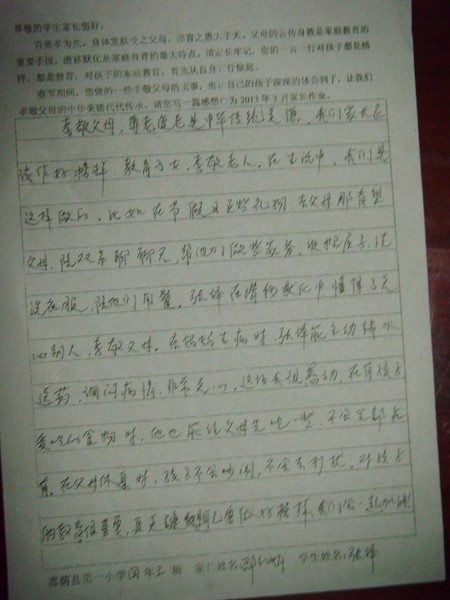 尊敬的学生家长您好:
百善孝为先,身体发肤受之父母,养育之恩大于天,父母的言传身教是家庭教育的
重要手段,潜移默化是家庭教育的最大特点,请家长牢记,您的一言一行对孩子都是榜
样,都是教育,对孩子的家庭教育,首先从自身言行做起。
春节期间,您做的一些孝敬父母的实事,也让自己的孩子深深的体会到了,让我们
孝敬父母的中华美德代代传承,请您写一篇感想 为2013年3月家长作业。
孝敬父母,尊老爱老是中华传统美德,我们家长应
该作好榜样,教育子女,孝敬老人,在生活中,我们是
这样做的,比如在节假日买些礼物 去父母那看望
父母,陪双亲聊聊天,帮他们做些家务,收拾屋子,洗
洗衣服,陪他们用餐,张 在潜移默化中懂得了关
心别人,孝敬父母,在妈妈生病时,张 能主动端水
送药,询问病情,非常关心,这让我很感动,在有孩子
爱吃的食物时,他也能给父母先吃一些,不会全部占
有,在父母休息时,孩子不会吵闹,不会去打扰,对孩子
的教育很重要,更是 自己要做好榜样,我们会一起加油!
县第一小学四年三班 家长姓名: 学生姓名:张